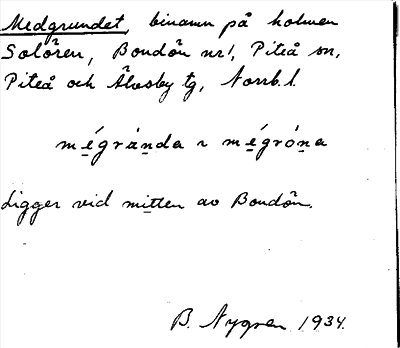 Medgrundet, binamn på holmen
Solören, Bondön nr 1, Piteå sn,
Piteå och Älvsby tg, Norrb. l.
mégrànda ~ mégróna
Ligger vid mitten av Bondön.
B. Nygren 1934.